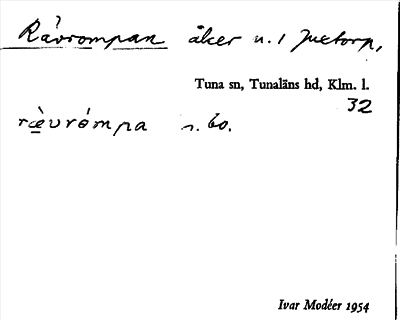 Råvrompan åker n. 1 Juetorp,
Tuna sn, Tunaläns hd, Klm. l.
32
rævrómpa n. bo.
Ivar Modéer 1954